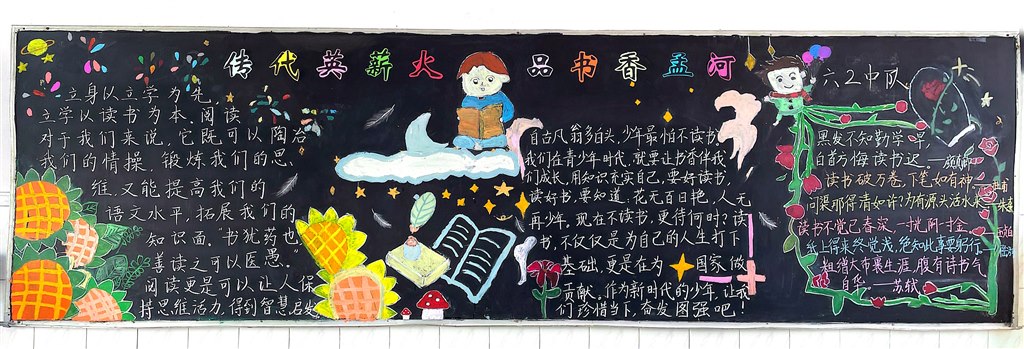 传代英薪火 品书香孟河
立身以立学为先,
立学以读书为本。阅读
对于我们来说,它既可以陶冶
我们的情操,锻炼我们的思
维,又能提高我们的
语文水平,拓展我们的
知识面。"书犹药也
善读之可以医愚。
阅读更是可以让人保
持思维活力,得到智慧启发
自古几翁多白头,少年最怕不读书
我们在青少年时代,就要让书香伴我
们成长,用知识充实自己,要好读书,
读好书,要知道:花无百日艳,人无
再少年,现在不读书,更待何时?读
书,不仅仅是为自己的人生打下
基础,更是在为国家做
贡献。作为新时代的少年,让我
们珍惜当下,奋发图强吧!
六2中队
黑发不知勤学早
白首方悔读书迟。
读书破万卷,下笔如有神
问渠那得清如许?为有源头活水来
读书不觉已春深,一寸光阴一寸金
纸上得来终觉浅,绝知此事要躬行
粗缯大布裹生涯,腹有诗书气
自华。 苏轼